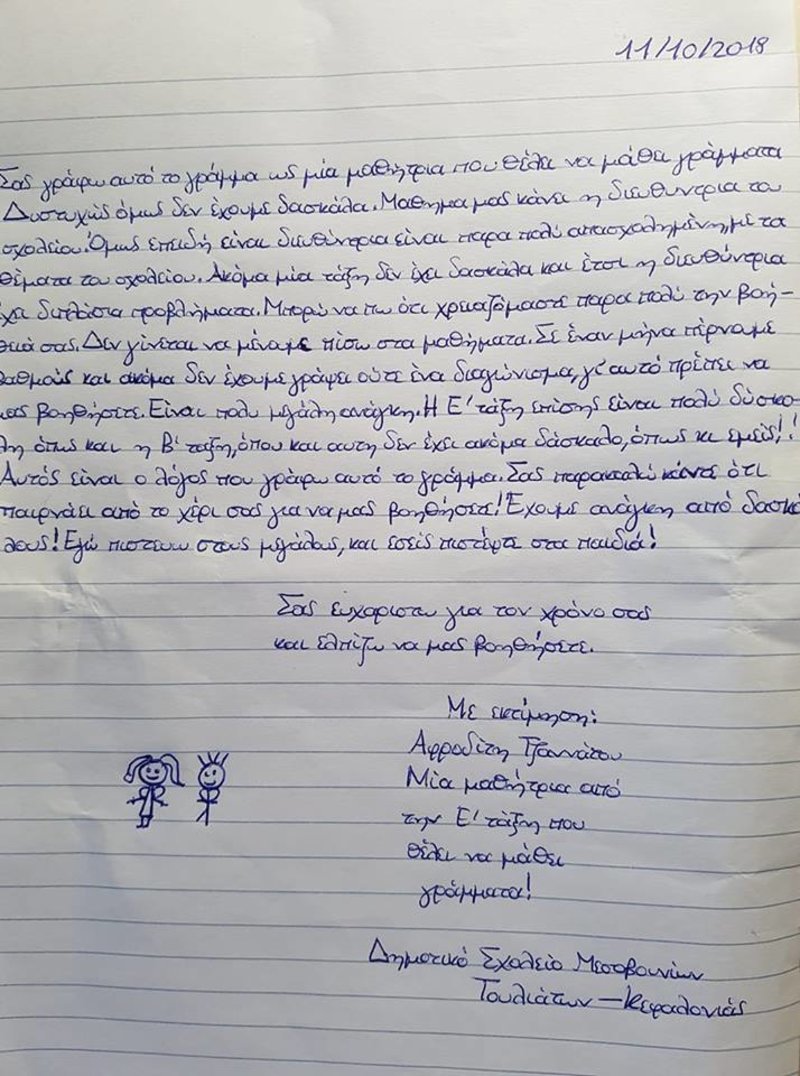 11/10/2018
Σας γράφω αυτό το γράμμα ως μία μαθήτρια που θέλει να μάθει γράμματα
Δυστυχώς όμως δεν έχουμε δασκάλα. Μάθημα μας κάνει η διευθύντρια του
σχολείου. Όμως επειδή είναι διευθύντρια είναι παρα πολύ απασχολημένη, με τα
θέματα του σχολείου. Ακόμα μία τάξη δεν έχει δασκάλα και έτσι η διευθύντρια
έχει διπλάσια προβλήματα. Μπορώ να πω ότι χρειαζόμαστε παρα πολύ την βοή-
θειά σας. Δεν γίνεται να μένουμε πίσω στα μαθήματα. Σε έναν μήνα πέρνουμε
βαθμούς και ακόμα δεν έχουμε γράψει ούτε ένα διαγώνισμα, γι' αυτό πρέπει να
μας βοηθήσετε. Είναι πολύ μεγάλη ανάγκη. Η Ε' τάξη επίσης είναι πολύ δύσκο-
λη όπως και η Β' τάξη, όπου και αυτη δεν έχει ακόμα δάσκαλο, όπως κι εμείς!!
Αυτός είναι ο λόγος που γράφω αυτό το γράμμα. Σας παρακαλώ κάντε ότι
παιρνάει από το χέρι σας για να μας βοηθήσετε! Έχουμε ανάγκη από δασκά
λους! Εγώ πιστευω στους μεγάλους, και εσείς πιστέψτε στα παιδιά!
Σας ευχαριστω για τον χρόνο σας
και ελπίζω να μας βοηθήσετε.
Με εκτίμηση:
Αφροδίτη Τζαννάτου
Μία μαθήτρια από
την Ε' τάξη που
θέλει να μάθει
γράμματα!
Δημοτικό Σχολείο Μεσοβουνίων
Τουλιάτων – Κεφαλονιάς